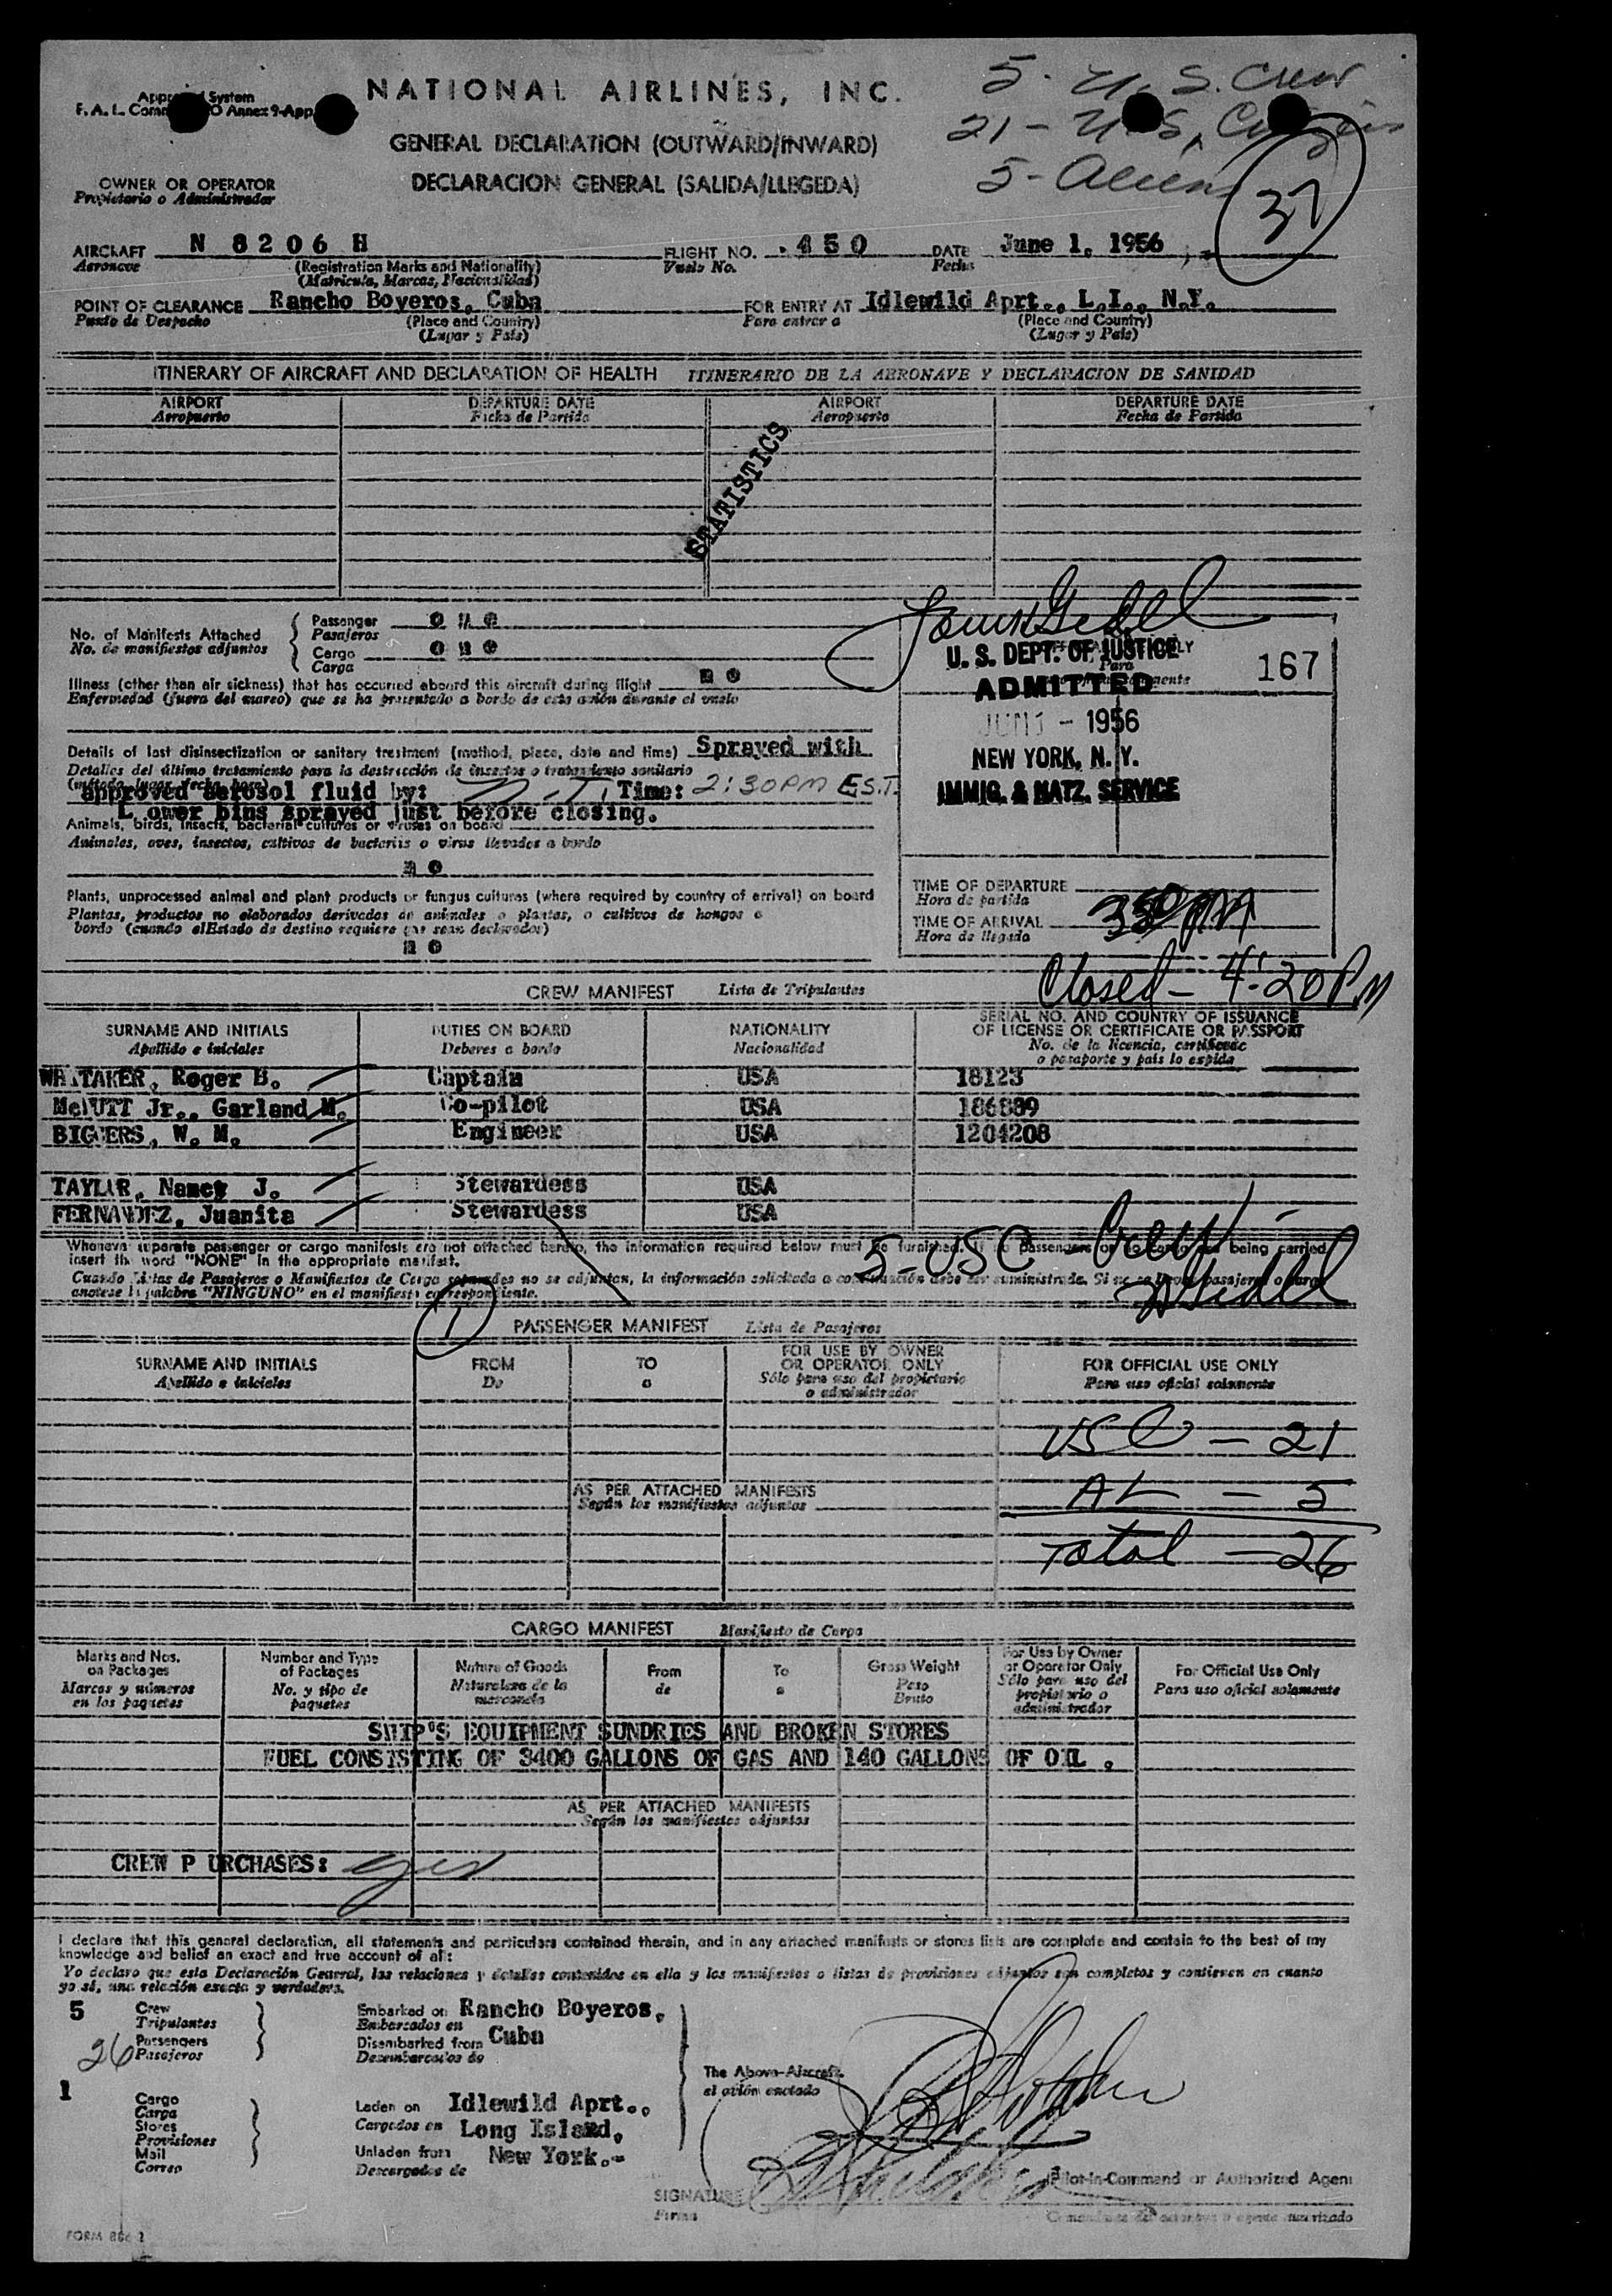 Approved System
F. A. L. Comm O Annex 9-App
NATIONAL AIRLINES, INC.
5 - U. S. Crew
21 - U.S. Citizens
5 - Aliens
GENERAL DECLARATION (OUTWARD/INWARD)
DECLARACION GENERAL (SALIDA/LLEGEDA)
OWNER OR OPERATOR
Propietario o Administrador
AIRCRAFT N 8206 H FLIGHT NO. 450 DATE June 1, 1956
Aeronave (Registration Marks and Nationality) Vuelo No. Fecha
(Matricula, Marcas, Nacionalidad)
POINT OF CLEARANCE Rancho Boyeros, Cuba FOR ENTRY AT Idlewild Aprt., L.I., N.Y.
Punto de Despacho (Place and Country) Para entrar a (Place and Country)
(Lugar y Pais) (Lugar y Pais)
ITINERARY OF AIRCRAFT AND DECLARATION OF HEALTH ITINERARIO DE LA AERONAVE Y DECLARACION DE SANIDAD
AIRPORT DEPARTURE DATE AIRPORT DEPARTURE DATE
Aeropuerto Fecha de Partida Aeropuerto Fecha de Partida
STATISTICS
No. of Manifests Attached
No. de manifiestos adjuntos
Passenger o n e
Pasajeros
Cargo o n e
Carga
U. S. DEPT. OF JUSTICE
167
ADMITTED
JUN 1 - 1956
NEW YORK, N. Y.
IMMIG. & NATZ. SERVICE
Illness (other than air sickness) that has occurred aboard this aircraft during flight n o
Enfermedad (fuera del mareo) que se ha presentado a bordo de este avión durante el vuelo
Details of last disinsectization or sanitary treatment (method, place, date and time) Sprayed with
Detalles del último tratamiento para la destrucción de insectos o tratamiento sanitario
approved aerosol fluid by: Time: 2:30PM E.S.T.
L ower bins sprayed just before closing.
Animals, birds, insects, bacterial cultures or viruses on board
Animales, aves, insectos, cultivos de bacterias o virus llevados a bordo
n o
Plants, unprocessed animal and plant products or fungus cultures (where required by country of arrival) on board
Plantas, productos no elaborados derivados de animales o plantas, o cultivos de hongos a
bordo (cuando elEstado de destino requiere que sean declarados)
n o
TIME OF DEPARTURE
Hora de partida
TIME OF ARRIVAL
Hora de llegada
Closed - 4:20 PM
CREW MANIFEST Lista de Tripulantes
SURNAME AND INITIALS DUTIES ON BOARD NATIONALITY SERIAL NO. AND COUNTRY OF ISSUANCE
OF LICENSE OR CERTIFICATE OR PASSPORT
Apellido e iniciales Deberes a bordo Nacionalidad No. de la licencia, certificado
o pasaporte y país lo expide
WHITAKER, Roger B. Captain USA 18123
McNUTT Jr., Garland M. Co-pilot USA 186889
BIGGERS, W. M. Engineer USA 1204208
TAYLOR, Nancy J. Stewardess USA
FERNANDEZ, Juanita Stewardess USA
5 - USC Crew
Whenever separate passenger or cargo manifests are not attached hereto, the information required below must be furnished. If no passengers or no cargo are being carried
insert the word "NONE" in the appropriate manifest.
Cuando Listas de Pasajeros o Manifiestos de Carga separades no se adjuntan, la información solicitada a continuación debe ser suministrada. Si no se lleva pasajeros o carga
anotese la palabra "NINGUNO" en el manifiesto correspondiente.
PASSENGER MANIFEST Lista de Pasajeros
SURNAME AND INITIALS FROM TO FOR USE BY OWNER
OR OPERATOR ONLY FOR OFFICIAL USE ONLY
Apellido e iniciales De a Sólo para uso del propietario
o administrador Para uso oficial solamente
USC - 21
AL - 5
Total - 26
AS PER ATTACHED MANIFESTS
Según los manifiestos adjuntos
CARGO MANIFEST Manifiesto de Carga
Marks and Nos.
on Packages
Marcas y números
en los paquetes
Number and Type
of Packages
No. y tipo de
paquetes
Nature of Goods
Naturaleza de la
mercancia
From
de
To
a
Gross Weight
Peso
Bruto
For Use by Owner
or Operator Only
Sólo para uso del
propietario o
administrador
For Official Use Only
Para uso oficial solamente
SHIP'S EQUIPMENT SUNDRIES AND BROKEN STORES
FUEL CONSISTING OF 3400 GALLONS OF GAS AND 140 GALLONS OF OIL .
AS PER ATTACHED MANIFESTS
Según los manifiestos adjuntos
CREW P URCHASES: yes
I declare that this general declaration, all statements and particulars contained therein, and in any attached manifests or stores lists are complete and contain to the best of my
knowledge and belief an exact and true account of all:
Yo declaro que esta Declaración General, las relaciones y detalles contenidos en ella y los manifiestos o listas de provisiones adjuntos son completos y contienen en cuanto
yo sé, una relación exacta y verdadera.
5 Crew
Tripulantes
26 Passengers
Pasajeros
Embarked on Rancho Boyeros,
Embarcados en
Disembarked from Cuba
Desembarcados de
1
Cargo
Carga
Stores
Provisiones
Mail
Correo
Laden on Idlewild Aprt.,
Cargados en Long Island,
Unladen from New York.-
Descargados de
The Above-Aircraft
el avión anotado
Pilot-in-Command or Authorized Agent
SIGNATURE
Firma
FORM 866 2